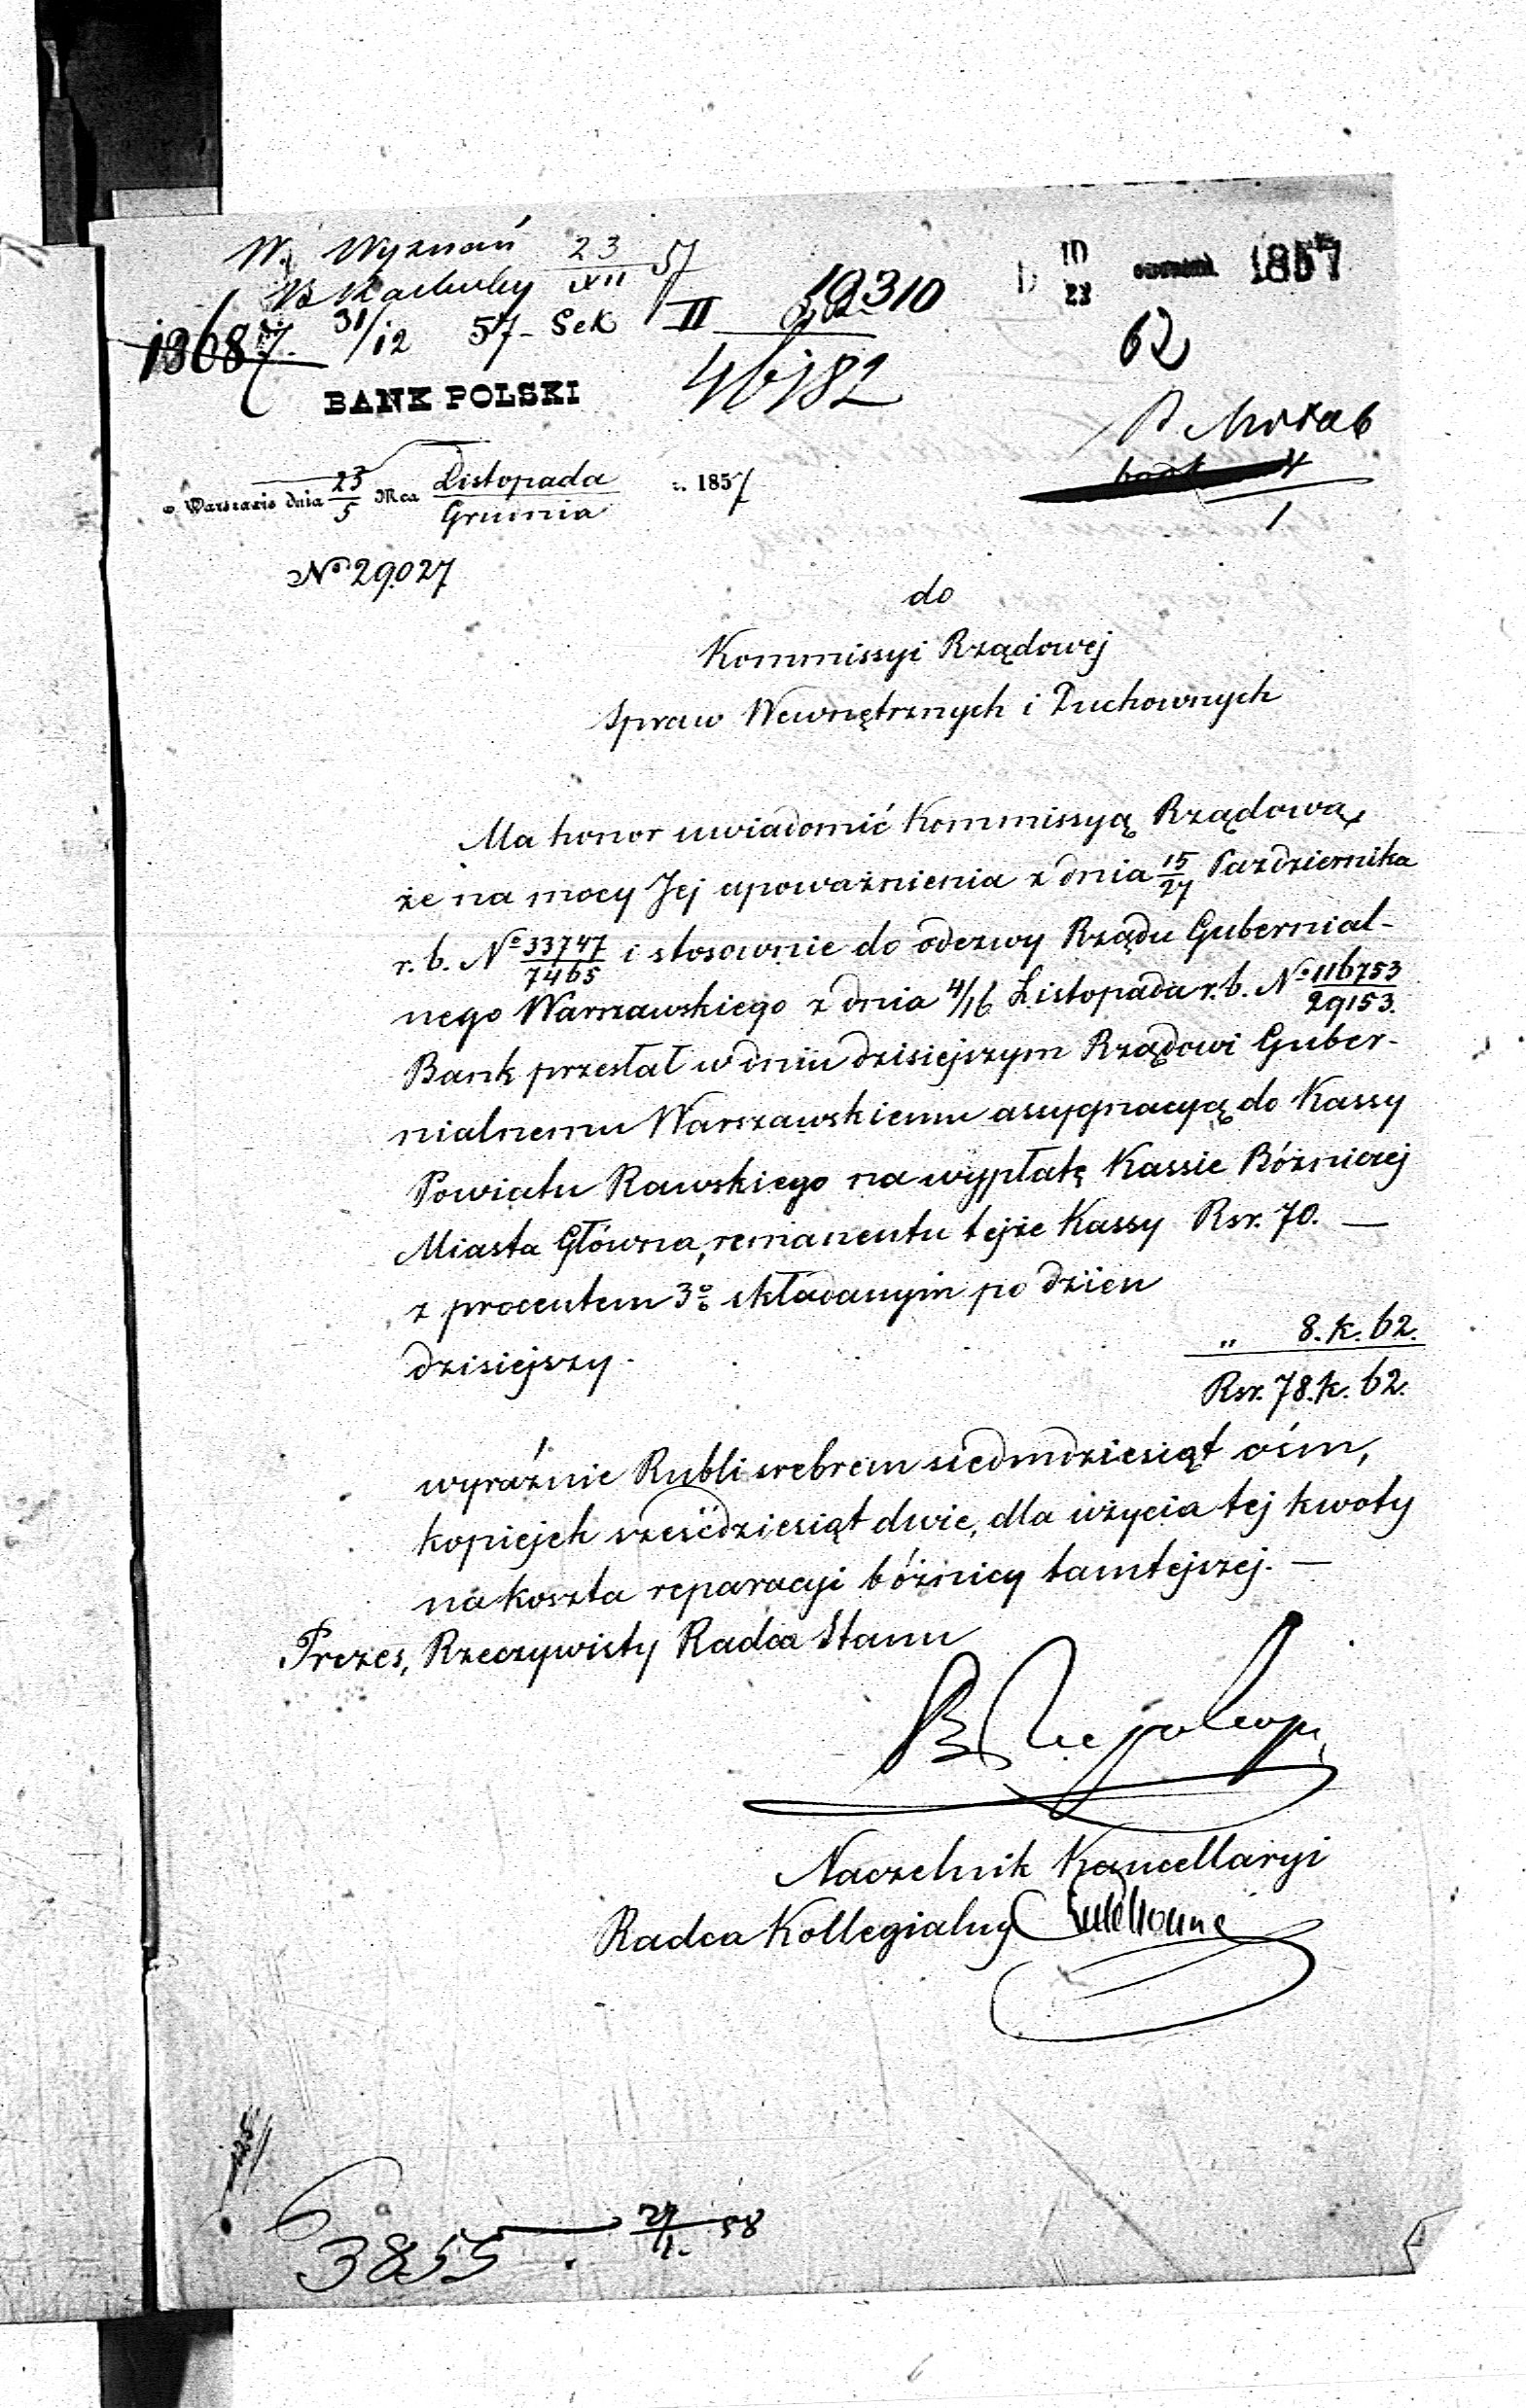 W. Wyznań 23/XII 57
31/12 57 - Sek II
19310
13687
46182
10/22 1857
62
BANK POLSKI
w Warszawie dnia 23/5 Mca Listopada/Grudnia r. 1857
4/1
No 29027
do
Kommissyi Rządowej
Spraw Wewnętrznych i Duchownych
Ma honor uwiadomić Kommissyą Rządową,
że na mocy Jej upoważnienia z dnia 15/27 Października
r. b. No 33747/7465 i stosownie do odezwy Rządu Gubernial-
nego Warszawskiego z dnia 4/16 Listopada r. b. No 116753/29153.
Bank przesłał w dniu dzisiejszym Rządowi Guber-
nialnemu Warszawskiemu assygnacyą do Kassy
Powiatu Rawskiego na wypłatę Kassie Bóżniczej
Miasta Główna, remanentu tejże Kassy Rsr. 70. —
z procentem 3% składanym po dzień
dzisiejszy. „ 8. k. 62.
Rsr. 78. k. 62.
wyraźnie Rubli srebrem siedmdziesiąt ośm,
kopiejek sześćdziesiąt dwie, dla użycia tej kwoty
na koszta reparacyi bóżnicy tamtejszej. —
Prezes, Rzeczywisty Radca Stanu
Naczelnik Kancellaryi
Radca Kollegialny
3855 58